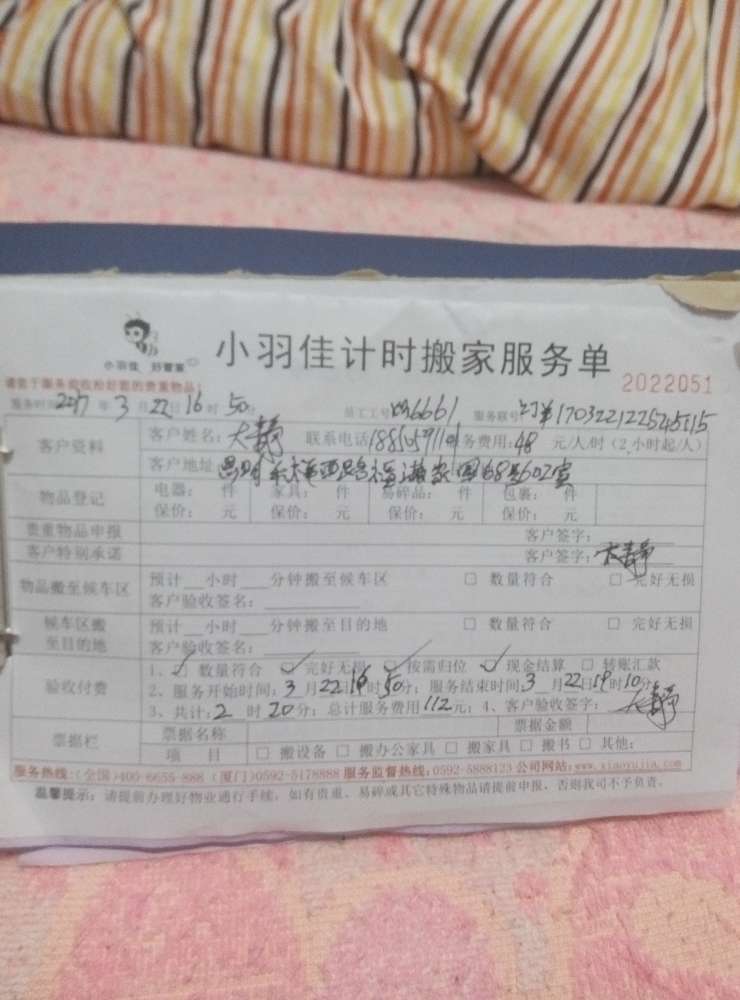 小羽佳 好管家
小羽佳计时搬家服务单
2022051
请您于服务前收检好您的贵重物品!
服务时间2017年3月22日16时50分 员工工号 6661 服务联号 订单170322122545115
客户资料 客户姓名: 大静 联系电话 服务费用:48元/人/时(2小时起/人)
客户地址 68号602室
物品登记 电器: 件 家具: 件 易碎品: 件 包裹: 件
保价: 元 保价: 元 保价: 元 保价: 元
贵重物品申报 客户签字:
客户特别承诺 客户签字:大静
物品搬至候车区 预计 小时 分钟搬至候车区 □ 数量符合 □ 完好无损
客户验收签名:
候车区搬至目的地 预计 小时 分钟搬至目的地 □ 数量符合 □ 完好无损
客户验收签名:
验收付费 1、☑ 数量符合 ☑ 完好无损 ☑ 按需归位 ☑ 现金结算 □ 转账汇款
2、服务开始时间:3月22日16时50分;服务结束时间:3月22日19时10分;
3、共计:2时20分;总计服务费用112元;4、客户验收签字:大静
票据栏 票据名称 票据金额
项 目 □ 搬设备 □ 搬办公家具 □ 搬家具 □ 搬书 □ 其他:
服务热线:(全国)400-6655-888 (厦门)0592-5178888 服务监督热线:0592-5888123 公司网站:www.xiaoyujia.com
温馨提示:请提前办理好物业通行手续,如有贵重、易碎或其它特殊物品请提前申报,否则我司不予负责。